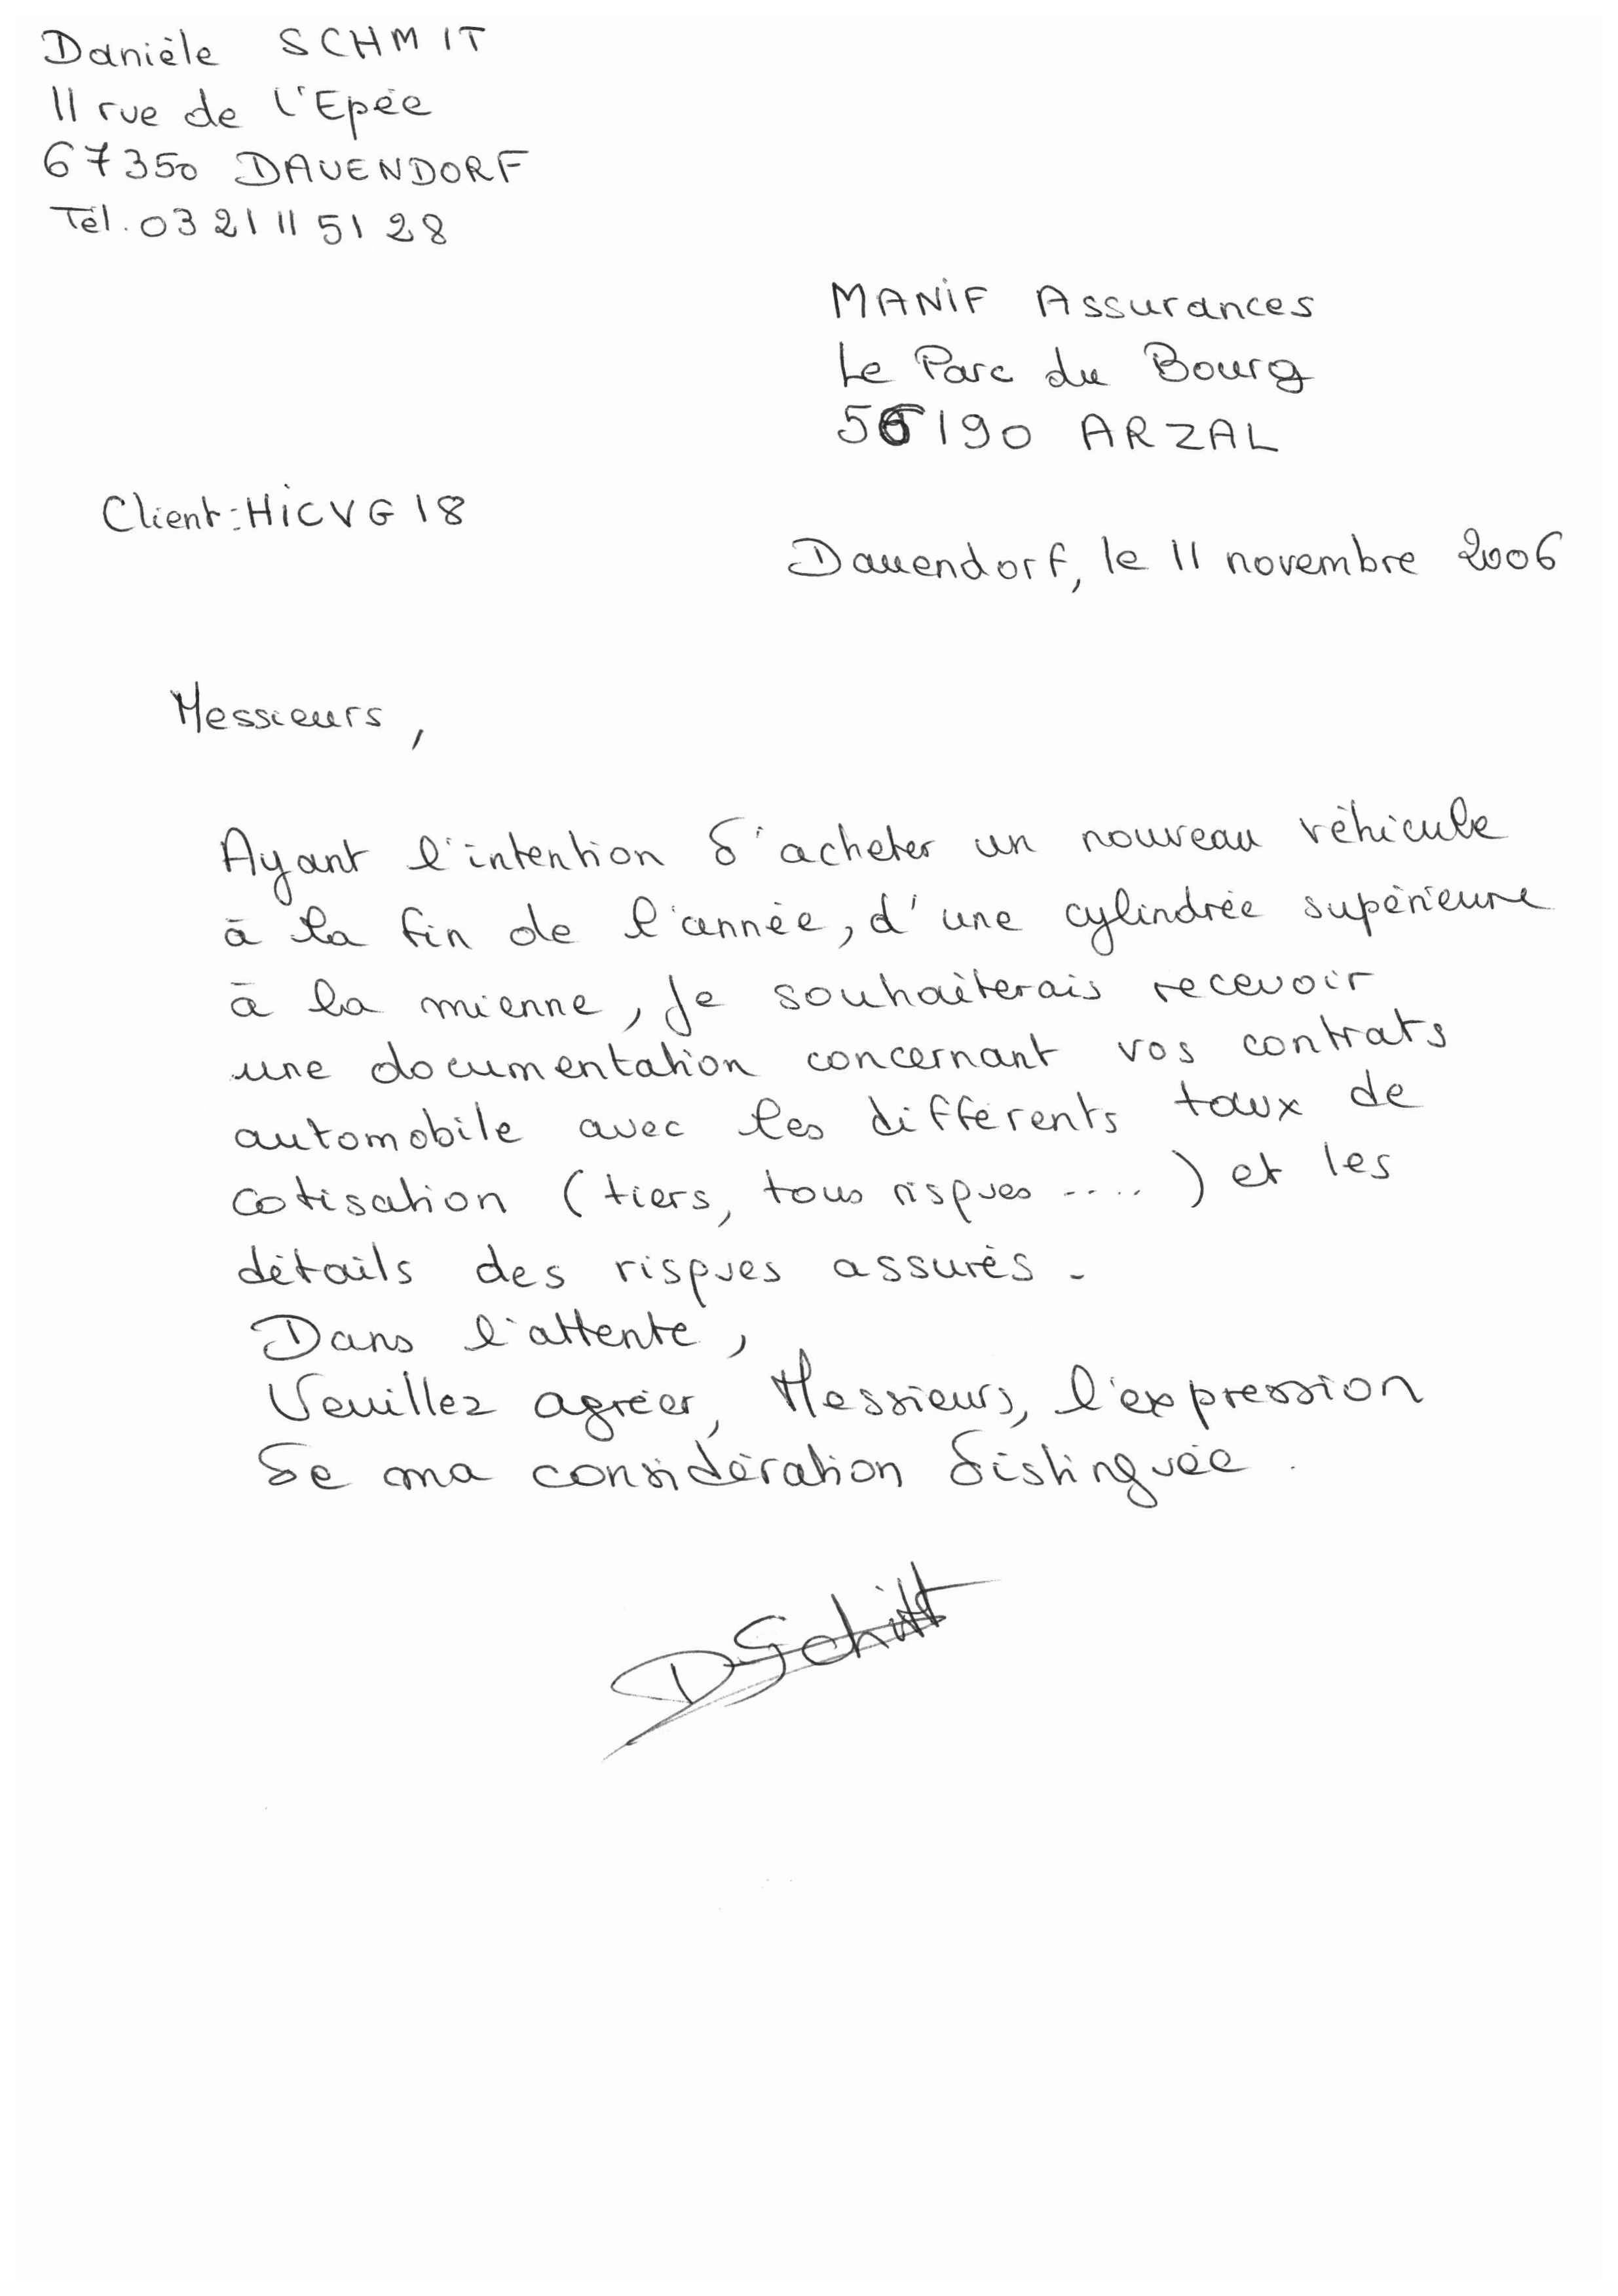 Danièle SCHMIT
11 rue de l'Epée
67350 DAUENDORF
Tél. 03 21 11 51 28
MANIF Assurances
Le Parc du Bourg
56190 ARZAL
Client : HICVG18
Dauendorf, le 11 novembre 2006
Messieurs,
Ayant l'intention d'acheter un nouveau véhicule
à la fin de l'année, d'une cylindrée supérieure
à la mienne, je souhaiterais recevoir
une documentation concernant vos contrats
automobile avec les différents taux de
cotisation (tiers, tous risques ....) et les
détails des risques assurés.
Dans l'attente,
Veuillez agréer, Messieurs, l'expression
de ma considération distinguée.
DSchitt